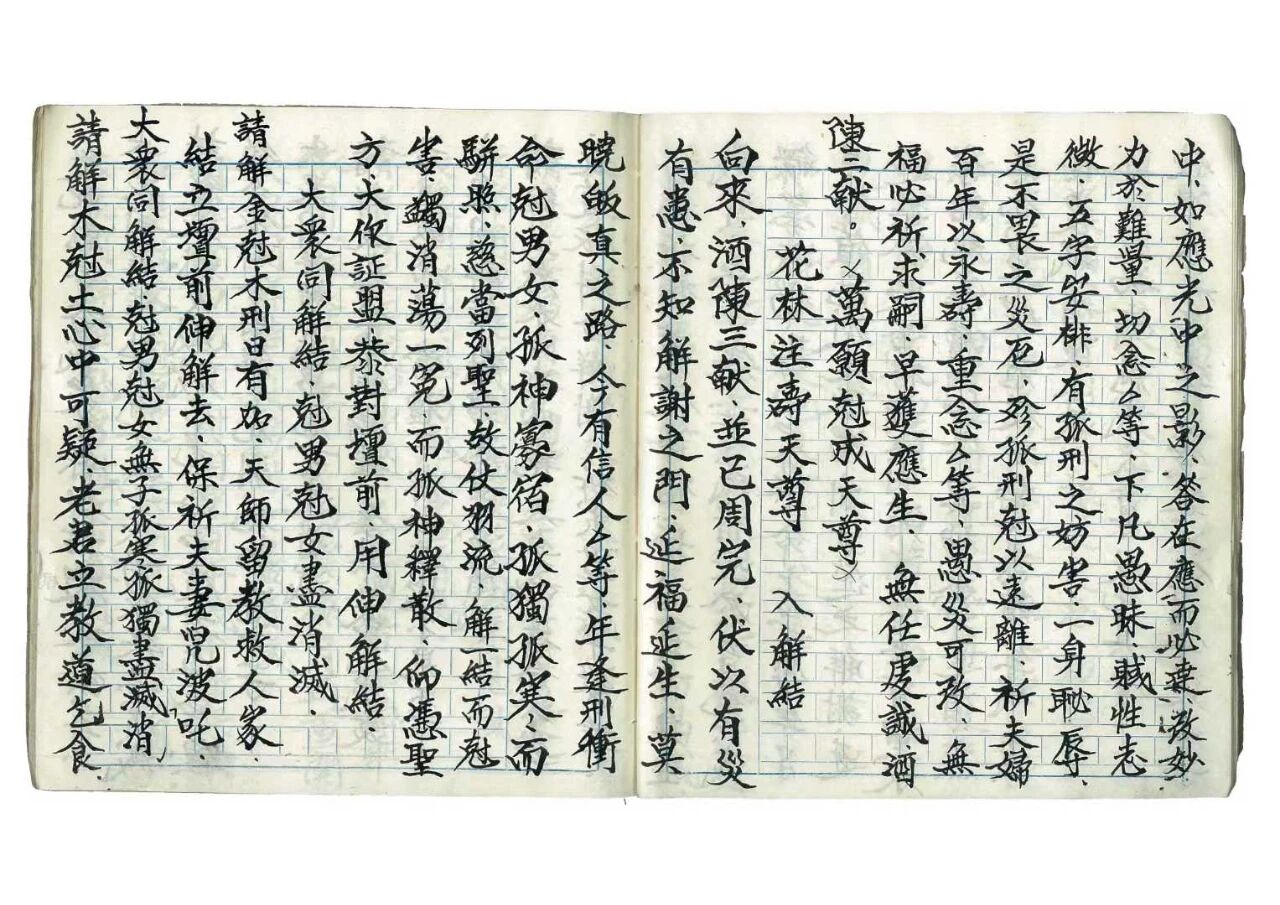 中、如應光中之影、答在應而必速、教妙
力於難量、切念厶等、下凡愚昧、賤性志
微、五字安排、有孤刑之妨害、一身耻辱、
是不畏之災厄、殄孤刑尅以遠離、祈夫婦
百年以永壽、重念厶等、愚災可改、無
福必祈、求嗣、早獲應生、無任虔誠、酒
陳二献。 萬願尅成天尊
花林注壽天尊 入解結
向來、洒陳三献、並已周完、伏以有災
有愚、不知解謝之門、延福延生、莫
曉皈真之路、今有信人厶等、年逢刑衝
命尅男女、孤神寡宿、孤獨孤寒、而
駢照、慈當列聖、故仗羽流、解一結而尅
害、獨消蕩一冤、而孤神釋散、仰憑聖
方、大作証盟、恭對壇前、用伸解結、
大衆同解結、尅男尅女盡消滅、
請解金尅木刑日有加、天師留教救人家、
結立壇前伸解去、保祈夫妻咒波吒、
大衆同解結、尅男尅女無子孤寒孤獨盡滅消、
請解木尅土心中可疑、老君立教道乞食、